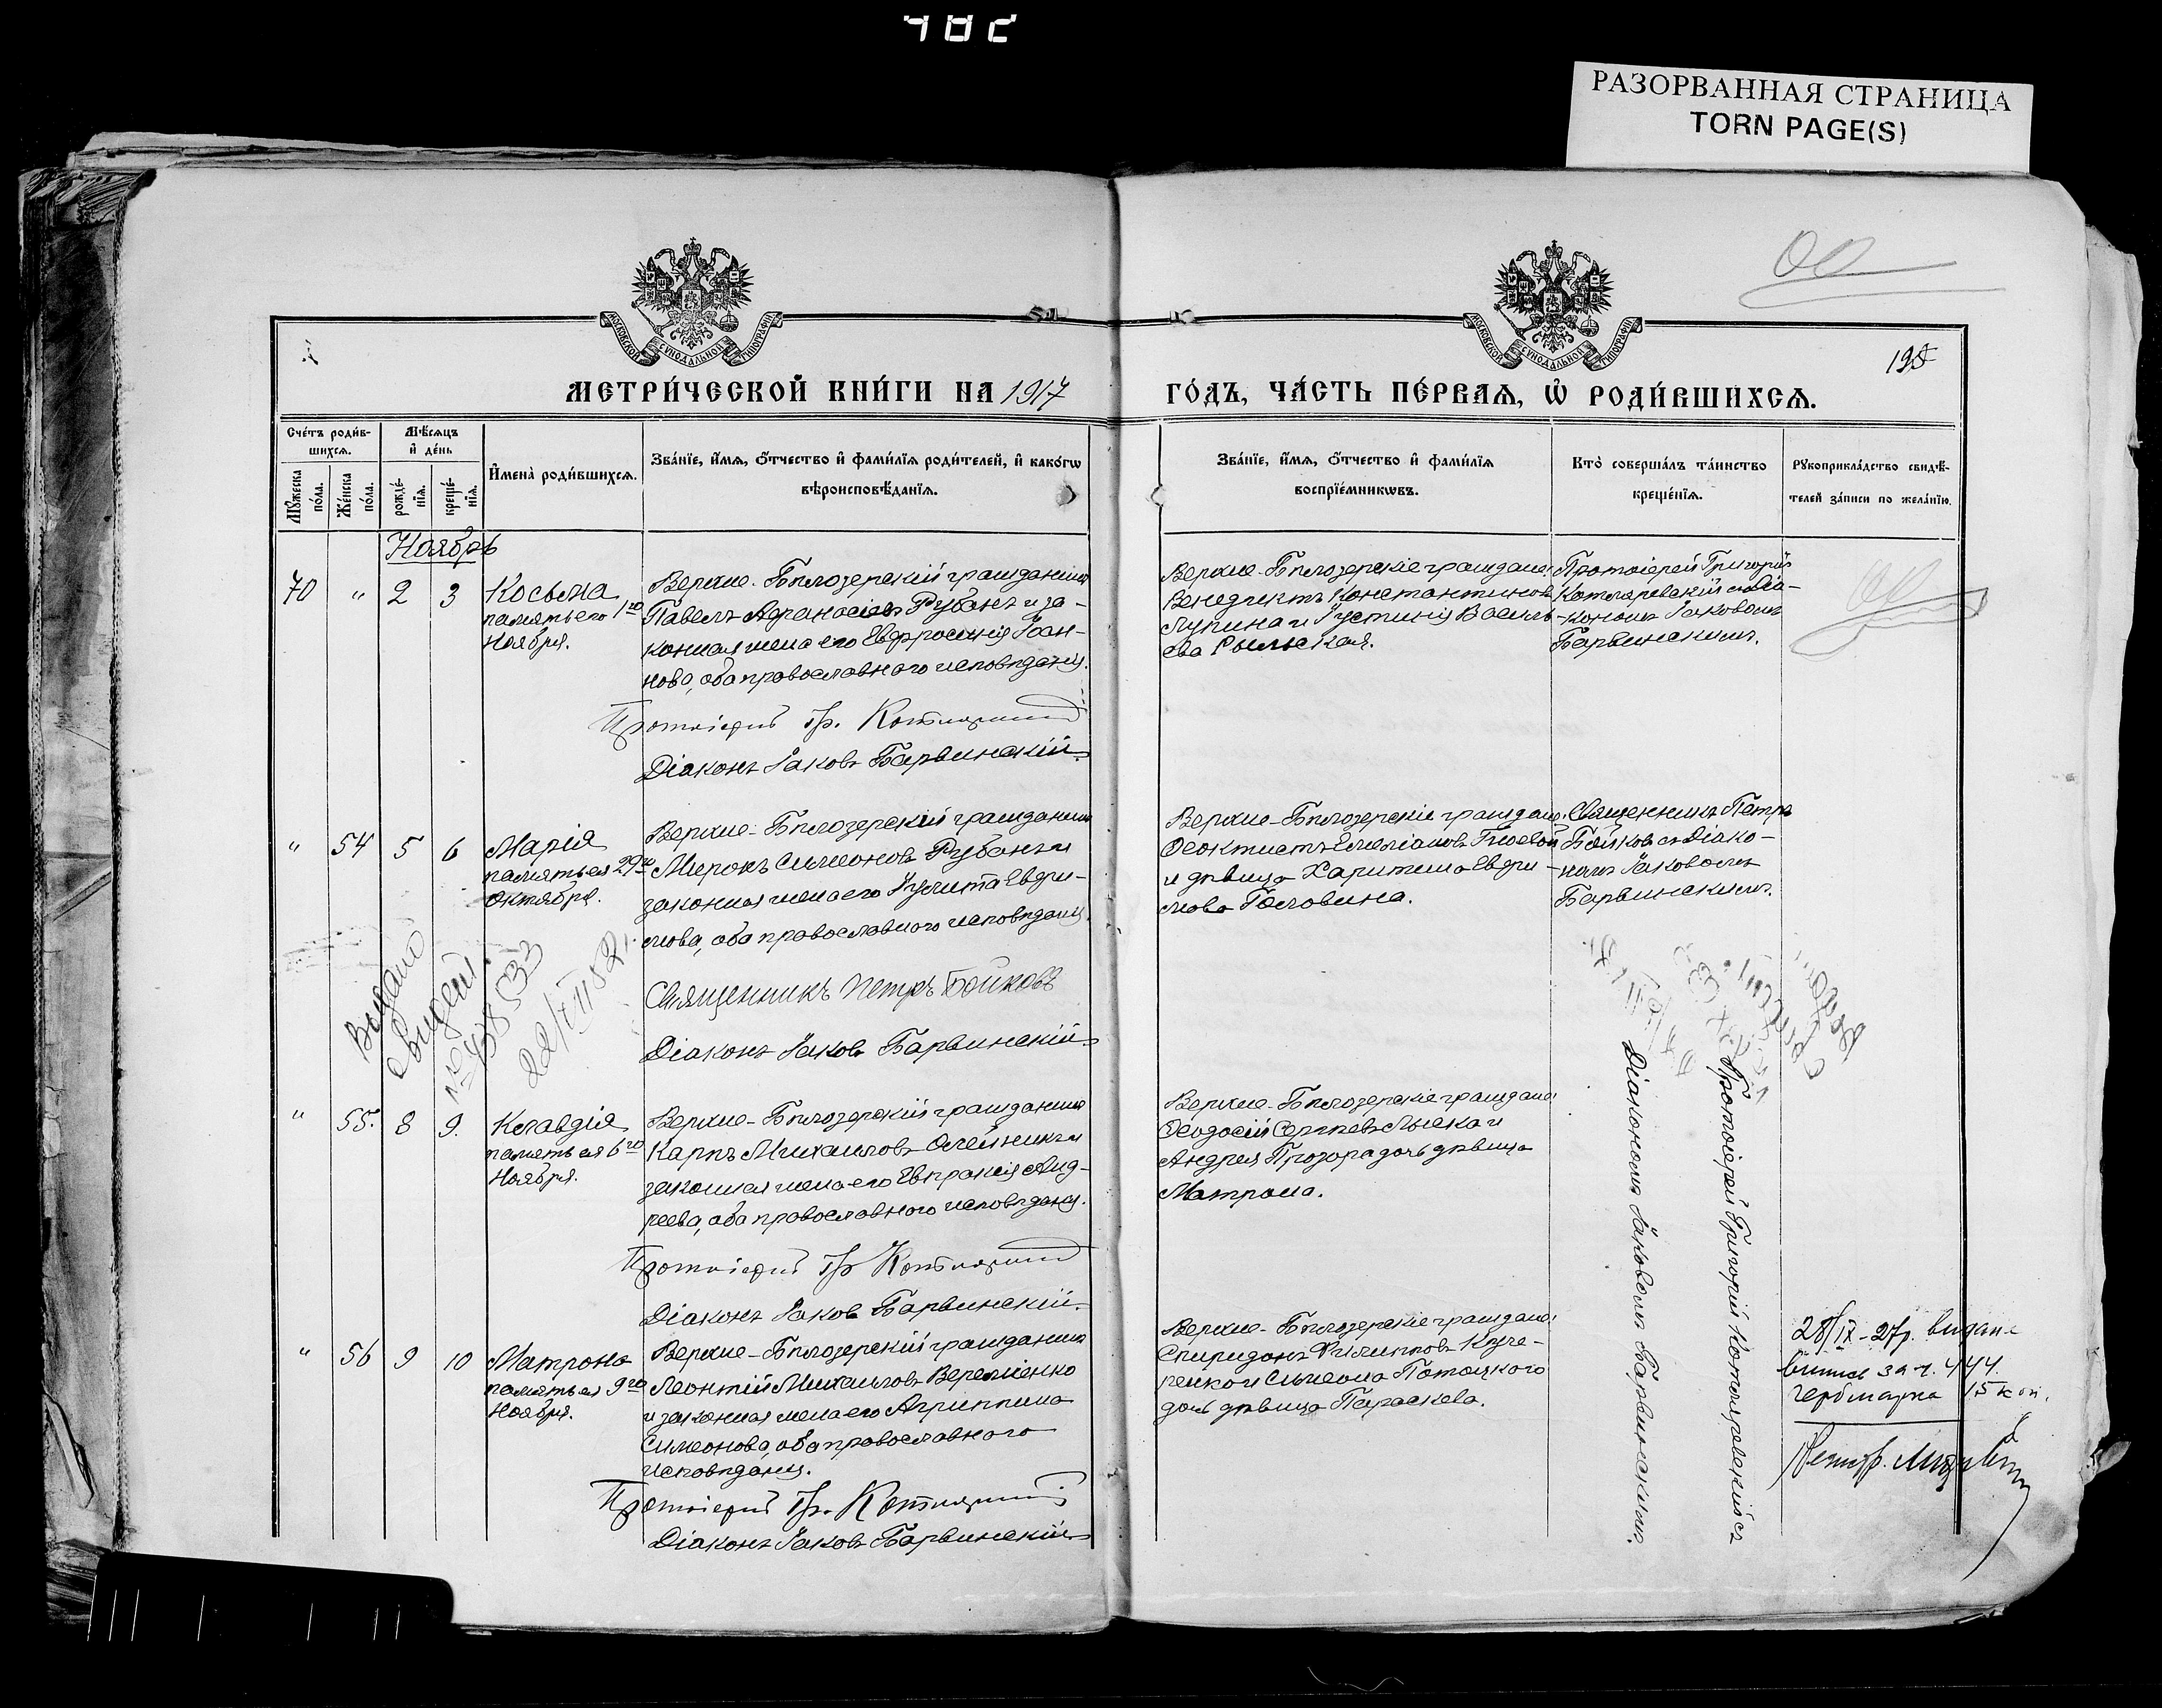 482
РАЗОРВАННАЯ СТРАНИЦА
TORN PAGE(S)
МОСКОВСКОЙ СУНОДАЛЬНОЙ ТИПОГРАФІИ
МОСКОВСКОЙ СУНОДАЛЬНОЙ ТИПОГРАФІИ
МЕТРИ́ЧЕСКОЙ КНИ́ГИ НА 1917
ГО́ДЪ, ЧА́СТЬ ПЕ́РВАѦ, Ѡ РОДИ́ВШИХСѦ.
Сче́тъ роди́в-
шихсѧ.
Мѣ́сѧцъ
и҆ де́нь
Мꙋ́жеска по́ла.
Же́нска по́ла.
рожде́-
нїѧ.
креще́-
нїѧ.
И҆мена̀ роди́вшихсѧ.
Зва́нїе, и҆́мѧ, ѻ҆́тчество и҆ фами́лїѧ роди́телей, и҆ како́гѡ
вѣроисповѣ́данїѧ.
Зва́нїе, и҆́мѧ, ѻ҆́тчество и҆ фами́лїѧ
воспрїе́мникѡвъ.
Кто̀ соверша́лъ та́инство
креще́нїѧ.
Рꙋкоприкла́дство свидѣ́-
телей за́писи по жела́нїю.
Ноябрь
70 " 2 3
Косьма
память его 1го
Ноября.
Верхне-Бѣлозерскій гражданинъ
Павелъ Афанасіевъ Рубанъ и за-
конная жена его Евфросинія Іоан-
нова, оба православнаго исповѣданія.
Протоіерей Гр. Котляревскій
Діаконъ Іаковъ Барвинскій
Верхне-Бѣлозерскіе граждане:
Венедиктъ Константиновъ
Лупина и Іустинія Василь-
ева Рыльская.
Протоіерей Григорій
Котляревскій съ Діа-
кономъ Іаковомъ
Барвинскимъ.
" 54 5 6
Марія
память ея 29го
Октября.
Верхне-Бѣлозерскій гражданинъ
Миронъ Симеоновъ Рубанъ и
законная жена его Іулита Евфи-
мова, оба православнаго исповѣданія.
Священникъ Петръ Бойковъ
Діаконъ Іаковъ Барвинскій
Верхне-Бѣлозерскіе граждане:
Феоктистъ Емеліановъ
и дѣвица Харитина Евфи-
мова Головина.
Священникъ Петръ
Бойковъ съ Діако-
номъ Іаковомъ
Барвинскимъ.
Выдано
свидет.
" 55. 8 9.
Клавдія
память ея 6го
Ноября.
Верхне-Бѣлозерскій гражданинъ
Карпъ Михаиловъ Олейникъ и
законная жена его Евпраксія Анд-
реева, оба православнаго исповѣданія.
Протоіерей Гр Котляревскій
Діаконъ Іаковъ Барвинскій.
Верхне-Бѣлозерскіе граждане:
Феодосій Сергѣевъ Лыска и
Андрея Прозора дочь дѣвица
Матрона.
Протоіерей Григорій Котляревскій съ
Діакономъ Іаковомъ Барвинскимъ.
" 56 9 10
Матрона
память ея 9го
Ноября.
Верхне-Бѣлозерскій гражданинъ
Леонтій Михаиловъ Веременко
и законная жена его Агриппина
Симеонова, оба православнаго
исповѣданія.
Протоіерей Гр. Котляревскій
Діаконъ Іаковъ Барвинскій
Верхне-Бѣлозерскіе граждане:
Спиридонъ Филипповъ Куче-
ренко и Симеона Потоцкого
дочь дѣвица Параскева.
28/IX-27р. видана
випись за ч. 444.
гербмарка 15 коп.